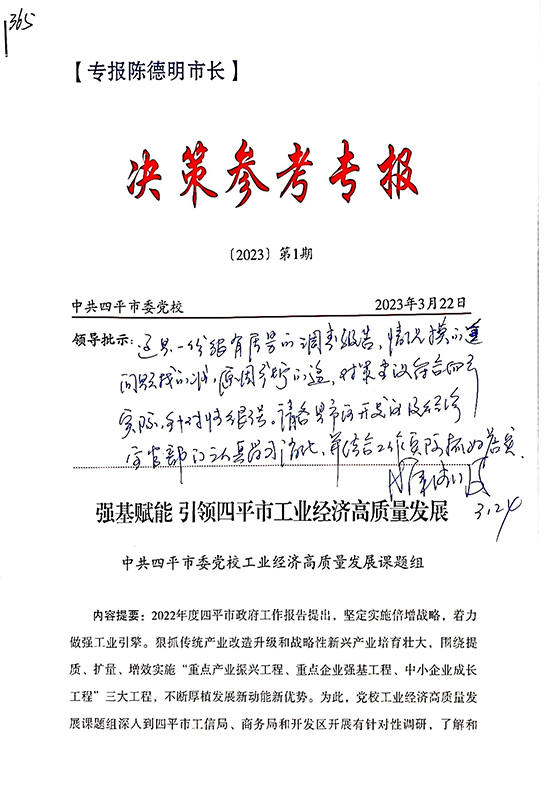 365
【专报陈德明市长】
决策参考专报
〔2023〕第1期
中共四平市委党校 2023年3月22日
领导批示：这是一份很有质量的调查报告，情况摸的透
问题找的准，原因分析的透，对策建议符合四平
实际，针对性很强。请各县市区开发区及经济
主管部门认真学习消化，并结合工作实际抓好落实
3.24
强基赋能 引领四平市工业经济高质量发展
中共四平市委党校工业经济高质量发展课题组
内容提要：2022年度四平市政府工作报告提出，坚定实施倍增战略，着力
做强工业引擎。狠抓传统产业改造升级和战略性新兴产业培育壮大，围绕提
质、扩量、增效实施“重点产业振兴工程、重点企业强基工程、中小企业成长
工程”三大工程，不断厚植发展新动能新优势。为此，党校工业经济高质量发
展课题组深入到四平市工信局、商务局和开发区开展有针对性调研，了解和